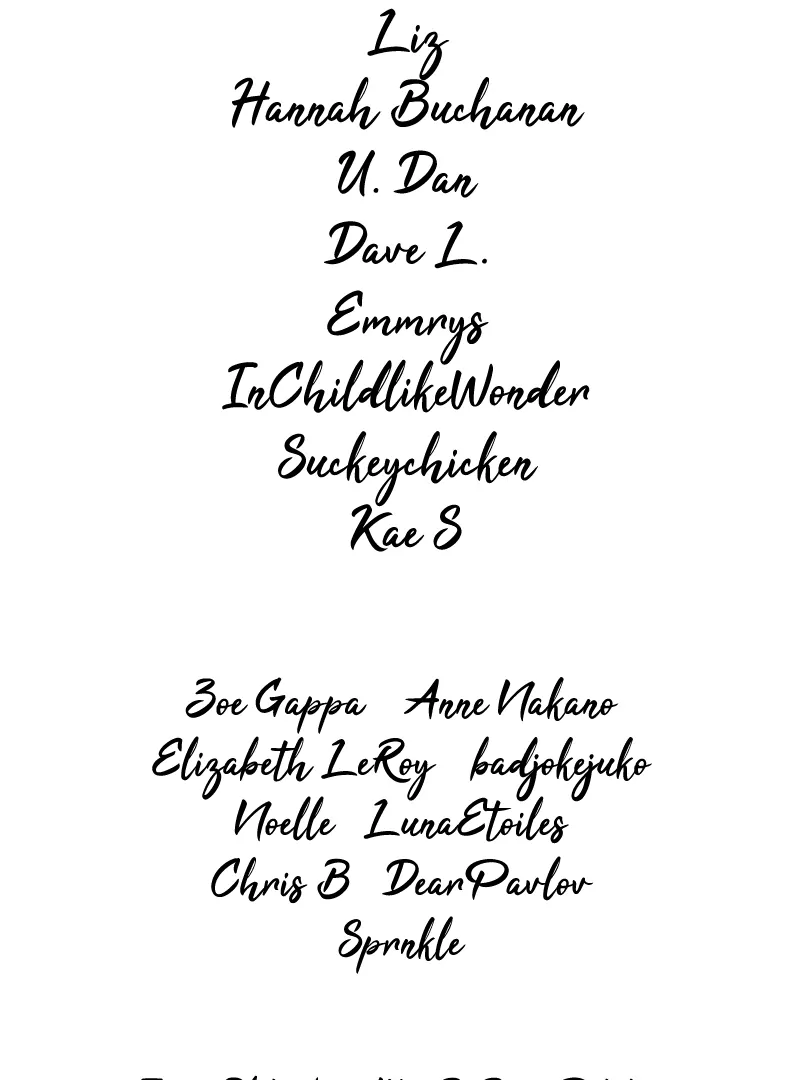 Liz
Hannah Buchanan
U. Dan
Dave L.
Emmrys
InChildlikeWonder
Suckeychicken
Kae S
Zoe Gappa Anne Nakano
Elizabeth LeRoy badjokejuko
Noelle LunaEtoiles
Chris B DearPavlov
Sprnkle